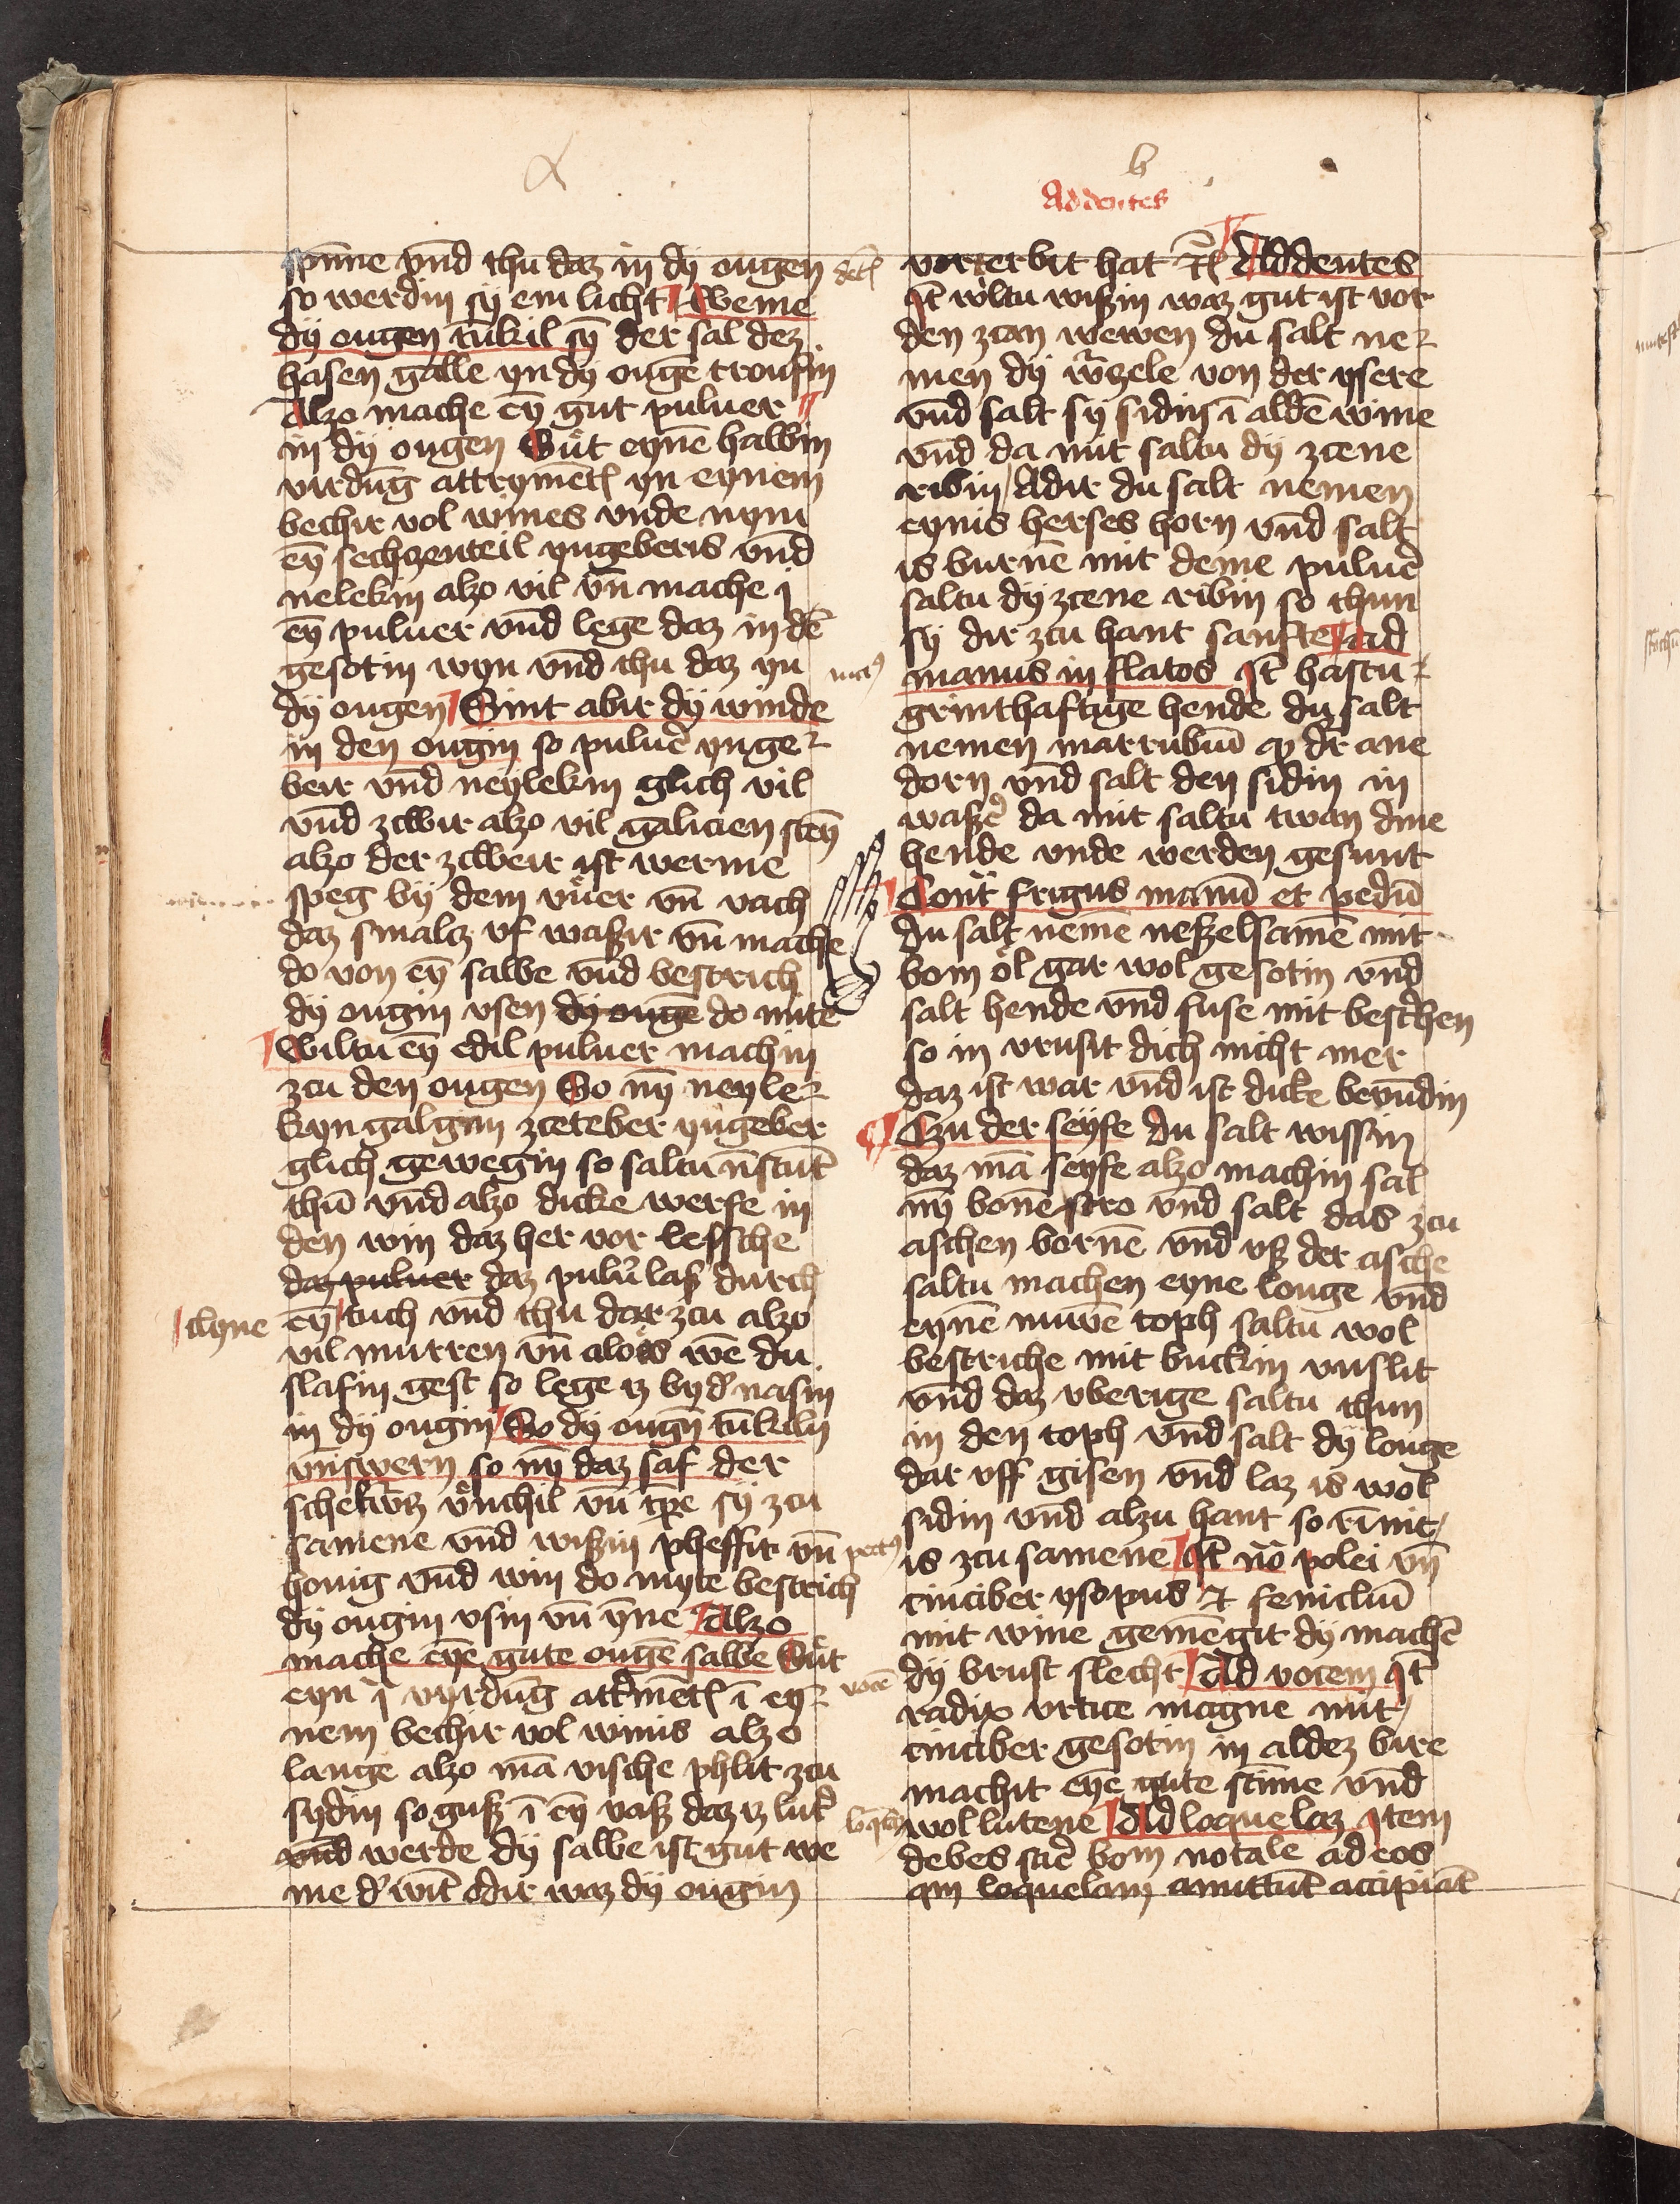 a
spīne vnd thu daz in dÿ ougen
so werdin sÿ em licht Weme
dÿ ougen tūkil sȳ der sal dez
hasen galle yn dÿ ougē troufin
Alzo mache eȳ gut puluer
in dÿ ougen Sut eynē halbin
virdūg attrymēt yn eynem
bechir vol wines vnde nym
eȳ sechzenteil yngeberis vnd
nelekin alzo vil vn̄ mache
eȳ puluer vnd lege daz in dē
gesotin wyn vnd thu daz yn
dÿ ougen Sint abir dÿ winde
in den ougin so puluē ynge
beir vnd neylekin glich vil
vnd zcwir alzo vil galicien steȳ
alzo der zcweir ist werme
speg bÿ dem vuer vn̄ vach
daz smalcz vf waßir vn̄ mache
do von eȳ salbe vnd bestrich
dÿ ougin vsen dÿ ougē do mite
Wiltu eȳ edil puluer machin
zcu den ougen So nȳ neyle
kyn galgan zceteber yngeber
glich gewegin so saltu
thū vnd alzo dicke werfe in
den win daz her vor lessche
daz puluer daz pulū laß durch
clyne
eȳ tuch vnd thu dar zcu alzo
vil mirren vn̄ aloes wē du
slafin gest so lege iz by d' nasin
in dÿ ougin So dÿ ougn̄ tūkiln
vn̄ swern so nȳ daz saf der
schelwŭrz venchil vn̄ sÿ zcu
samene vnd wißin pheffir vn̄
honig vnd win do myte bestrich
dÿ ougin vsin vn̄ yne Alzo
mache eȳe gute ougē salbe Sut
eyn vyrdūg attrmēt ī ey
nem bechir vol winis alzo
lange alzo mā vische phlit zcu
sydin so guß ī eȳ vaß daz iz lut'
vnd werde dÿ salbe ist gut we
me d' wīt odir waz dÿ ougin
b
Ad dentes
dēt
vorterbit hat Ad dentes
It wiltu wißin waz gut ist vor
den zcan wewen du salt ne
men dÿ wrzele von der ysere
vnd salt sÿ sidin ī aldē wine
vnd da mit saltu dÿ zcene
ribin Adir du salt nemen
eynis herses horn vnd salt
is burnē mit deme puluē
saltu dÿ zcene ribin so thun
sÿ dir zcu hant sanfte ad
manus in flatos It hastu
grinthaftige hende du salt
nemen marrubiū dr ane
dorn vnd salt den sidin in
waßē da mit saltu twan dine
hende vnde werden gesunt
Cont frigus manū et pedū
du salt nemē neßelsamē mit
bom ol gar wol gesotin vnd
salt hende vnd fuse mit bestrhen
so in vrusit dich nicht mer
daz ist war vnd ist dicke bevūdin
Czu der seyfe du salt wissin
daz mā seyfe alzo machin sal
nȳ bonē stro vnd salt das zcu
aschen bornē vnd vß der asche
saltu machen eyne louge vnd
eynē nuwē toph saltu wol
bestriche mit buckin vnslit
vnd daz vberige saltu thun
in den toph vnd salt dÿ louge
dar vff gisen vnd laz is wol
sidin vnd alzu hant so rīnit
pect9
is zcu samene It polei vn̄
cinciber ysopus et feniclum
mit wine gemēgit dÿ machē
dÿ brust slecht Ad vocem It
vocē
radix vrtice magne mit
cinciber gesotin in aldez bire
machit eȳe gute stīme vnd
wol lutene Ad loquelaz Item
debes scē bom notale ad eos
qui loquelam amittūt accipiāt